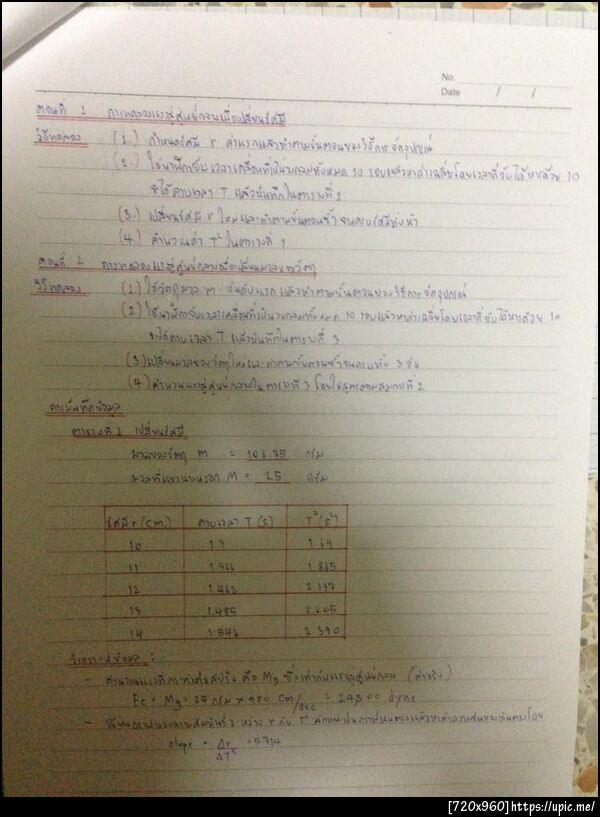 No.
Date / /
ตอนที่ 1 การทดลองแรงสู่ศูนย์กลางเมื่อเปลี่ยนรัศมี
วิธีทดลอง (1.) กำหนดรัศมี r ค่าแรกแล้วทำตามขั้นตอนของวิธีการจัดอุปกรณ์
(2.) ใช้นาฬิกาจับเวลาเคลื่อนที่เป็นวงกลมทั้งหมด 10 รอบแล้วหาค่าเฉลี่ยโดยเวลาที่จับได้หารด้วย 10
จะได้คาบเวลา T แล้วบันทึกในตารางที่ 1
(3.) เปลี่ยนรัศมี r ใหม่และทำตามขั้นตอนซ้ำจนครบรัศมีทั้งห้า
(4.) คำนวณค่า T² ในตารางที่ 1
ตอนที่ 2 การทดลองแรงสู่ศูนย์กลางเมื่อเปลี่ยนมวลของวัตถุ
วิธีทดลอง (1.) ใช้วัตถุมวล m อันดับแรกแล้วทำตามขั้นตอนของวิธีการจัดอุปกรณ์
(2) ใช้นาฬิกาจับเวลาเคลื่อนที่เป็นวงกลมทั้งหมด 10 รอบแล้วหาค่าเฉลี่ยโดยเวลาที่จับได้หารด้วย 10
จะได้คาบเวลา T แล้วบันทึกในตารางที่ 3
(3) เปลี่ยนมวลของวัตถุใหม่และทำตามขั้นตอนซ้ำจนครบทั้ง 3 อัน
(4) คำนวณแรงสู่ศูนย์กลางในตารางที่ 3 โดยใช้สูตรตามสมการที่ 2
การบันทึกข้อมูล
ตารางที่ 1 เปลี่ยนรัศมี
มวลของวัตถุ m = 106.75 กรัม
มวลที่แขวนบนรอก M = 25 กรัม
รัศมี r (cm.) คาบเวลา T (s) T² (s²)
10 1.3 1.69
11 1.366 1.865
12 1.462 2.137
13 1.485 2.205
14 1.546 2.390
วิเคราะห์ข้อมูล :
- คำนวณแรงที่กระทำต่อสปริง คือ Mg ซึ่งเท่ากับแรงสู่ศูนย์กลาง (ค่าจริง)
Fc = Mg = 25 กรัม × 980 cm/sec = 24,500 dyne
- เขียนกราฟของความสัมพันธ์ระหว่าง r กับ T²
slope = Δr/ΔT² = 5.714
[720x960] https://upic.me/